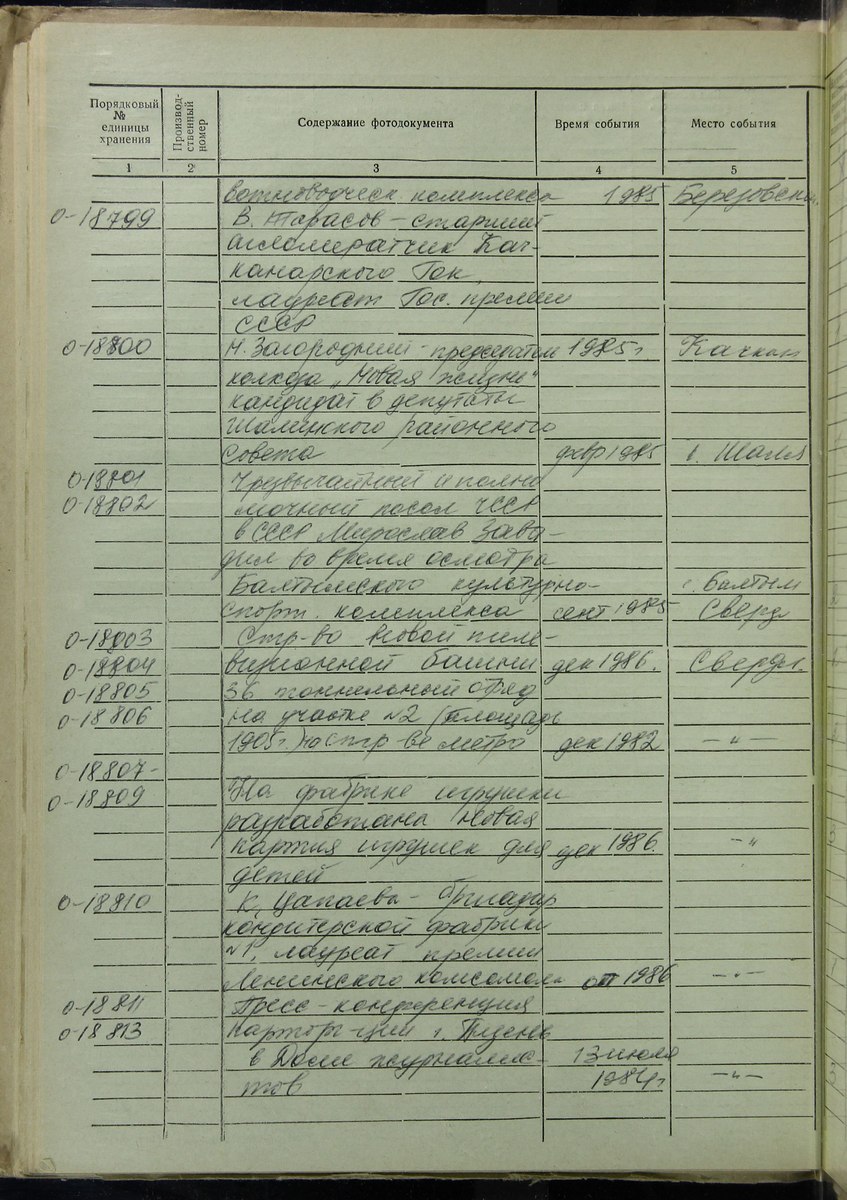 Порядковый № единицы хранения
Производ-ственный номер
Содержание фотодокумента
Время события
Место события
1 2 3 4 5
вотноводческ. комплекса 1985 Березовский
0-18799 В. Тарасов - старший
агломератчик Кач-
канарского Гок,
лауреат Гос. премии
СССР
0-18800 Загородний - председатель 1985 г Качкан
колхоза „Новая жизнь"
кандидат в депутаты
Шалинского районного
Совета февр 1985 Шаля
0-18801 Чрезвычайный и полно
0-18802 мочный посол ЧССР
в СССР Мирослав Зава-
дил во время осмотра
Балтымского культурно- с. Балтым
спорт. комплекса сент 1985 Сверд
0-18803 Стр-во новой теле-
0-18804 визионной башни дек 1986. Свердл.
0-18805 36 тоннельный отряд
0-18806 на участке №2 (площадь
1905 г.) по стр-ве метро дек 1982 — " —
0-18807-
0-18809 На фабрике игрушки
разработана новая
партия игрушек для дек 1986. — "
детей
0-18810 К. Цапаева - бригадир
кондитерской фабрики
№1, лауреат премии
Ленинского комсомола 1986 — " —
0-18811 Пресс-конференция
0-18813 г. Пльзень
в Доме журналис- 13 июля
тов 1984 г. — " —